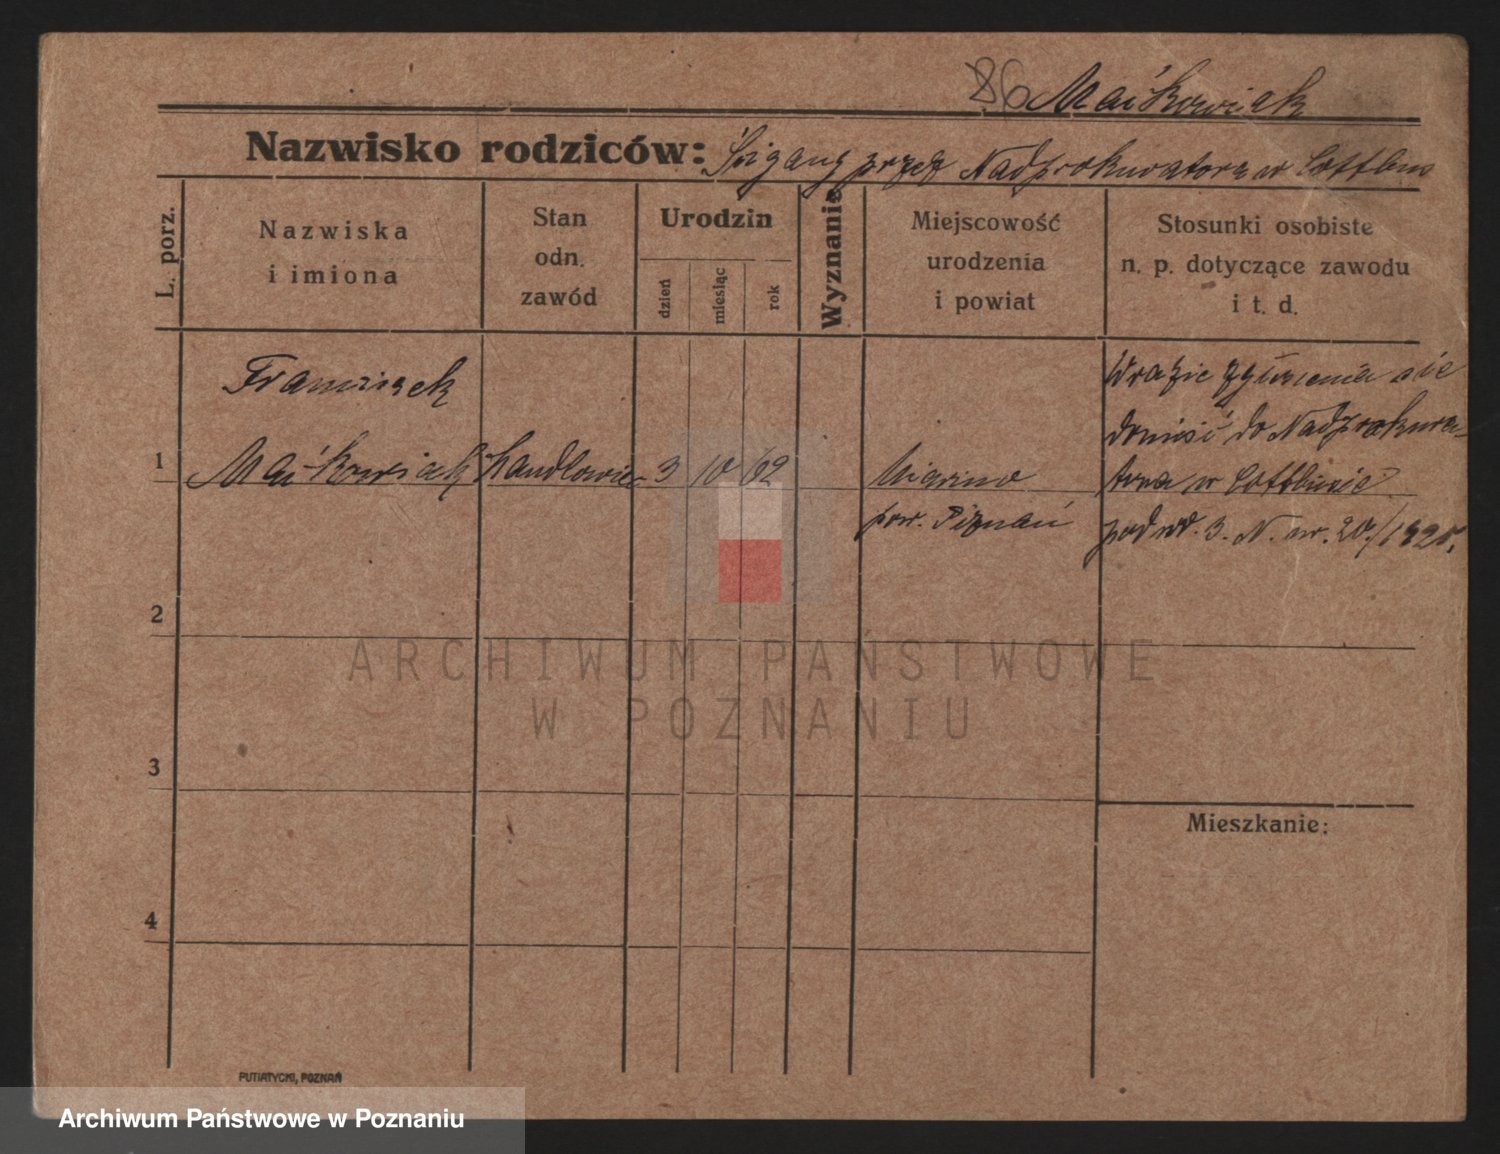 86 Maćkowiak
Nazwisko rodziców: Ścigany przez Nadprokuratora w Cottbus
L. porz.
Nazwiska
i imiona
Stan
odn.
zawód
Urodzin
dzień
miesiąc
rok
Wyznanie
Miejscowość
urodzenia
i powiat
Stosunki osobiste
n. p. dotyczące zawodu
i t. d.
Franciszek
1 Maćkowiak handlowiec 3 10 02
pow. Poznań
W razie donieść do Nadprokura-
tora w Cottbusie
pod 3. N. nr. 20/1925.
2
3
4
Mieszkanie:
PUTIATYCKI, POZNAŃ
ARCHIWUM PAŃSTWOWE
W POZNANIU
Archiwum Państwowe w Poznaniu